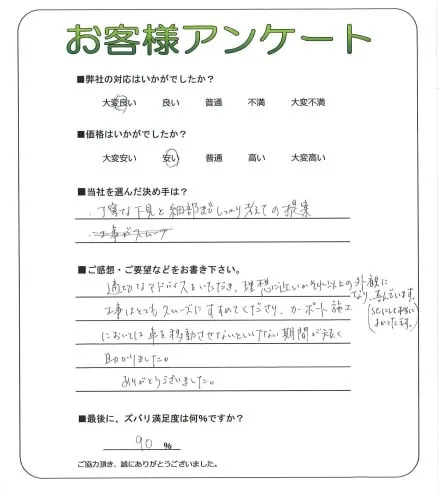 お客様アンケート
■弊社の対応はいかがでしたか？
大変良い 良い 普通 不満 大変不満
■価格はいかがでしたか？
大変安い 安い 普通 高い 大変高い
■当社を選んだ決め手は？
・丁寧な下見と細部までしっかり考えての提案
・工事がスムーズ
■ご感想・ご要望などをお書き下さい。
適切なアドバイスをいただき、理想に近いかそれ以上の外観に
なり、喜んでいます。
工事はとてもスムーズにすすめてくださり、カーポート施工
においては車を移動させないといけない期間が短く
助かりました。
ありがとうございました。
■最後に、ズバリ満足度は何%ですか？
90 %
ご協力頂き、誠にありがとうございました。